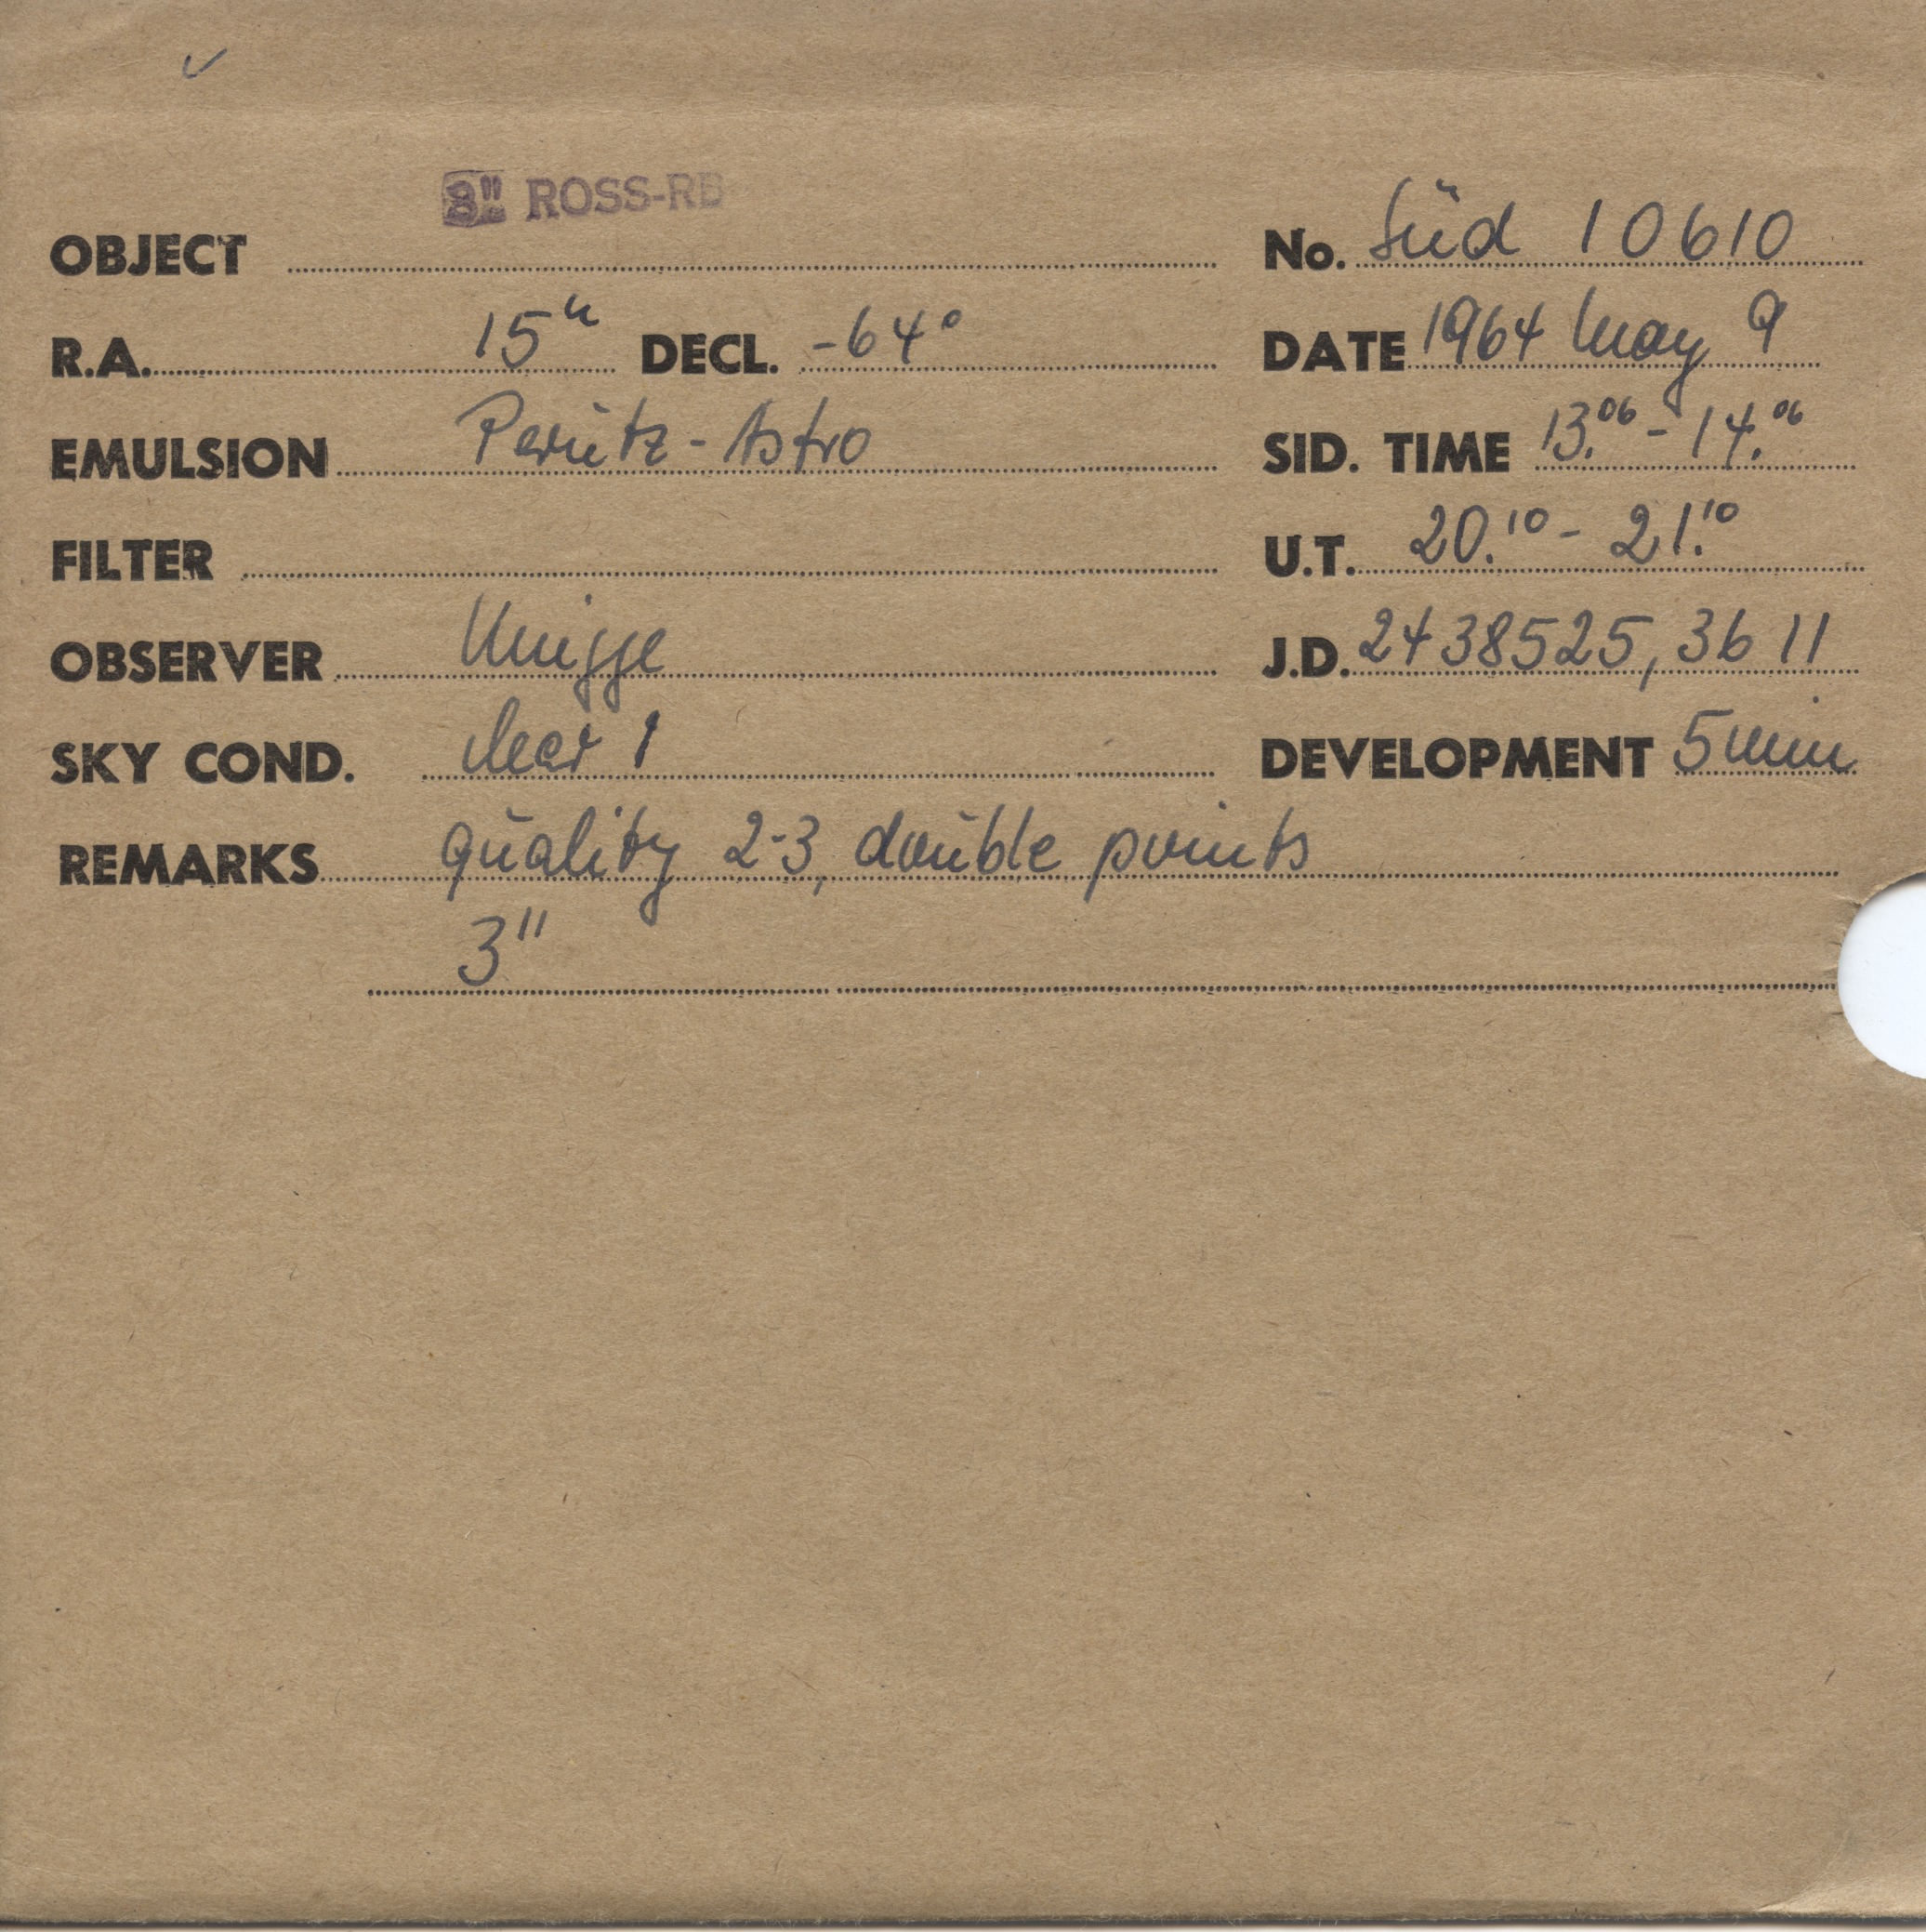 3" ROSS-RB
OBJECT No. Süd 10610
R.A. 15h DECL. -64° DATE 1964 May 9
EMULSION Perutz-Astro SID. TIME 13.06 - 14.06
FILTER U.T. 20.10 - 21.10
OBSERVER Knigge J.D. 2438525,3611
SKY COND. clear 1 DEVELOPMENT 5 min
REMARKS quality 2-3, double points
3"